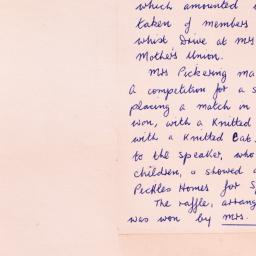 which amounted
taken of members
whist Drive at Mrs
Mothers Union.
Mrs Pickering ma
A competition for a s
placing a match in
won, with a Knitted
with a Knitted Cat.
to the Speaker, who
children, & showed a
Peckles Homes for S
The raffle, arran
was won by Mrs.